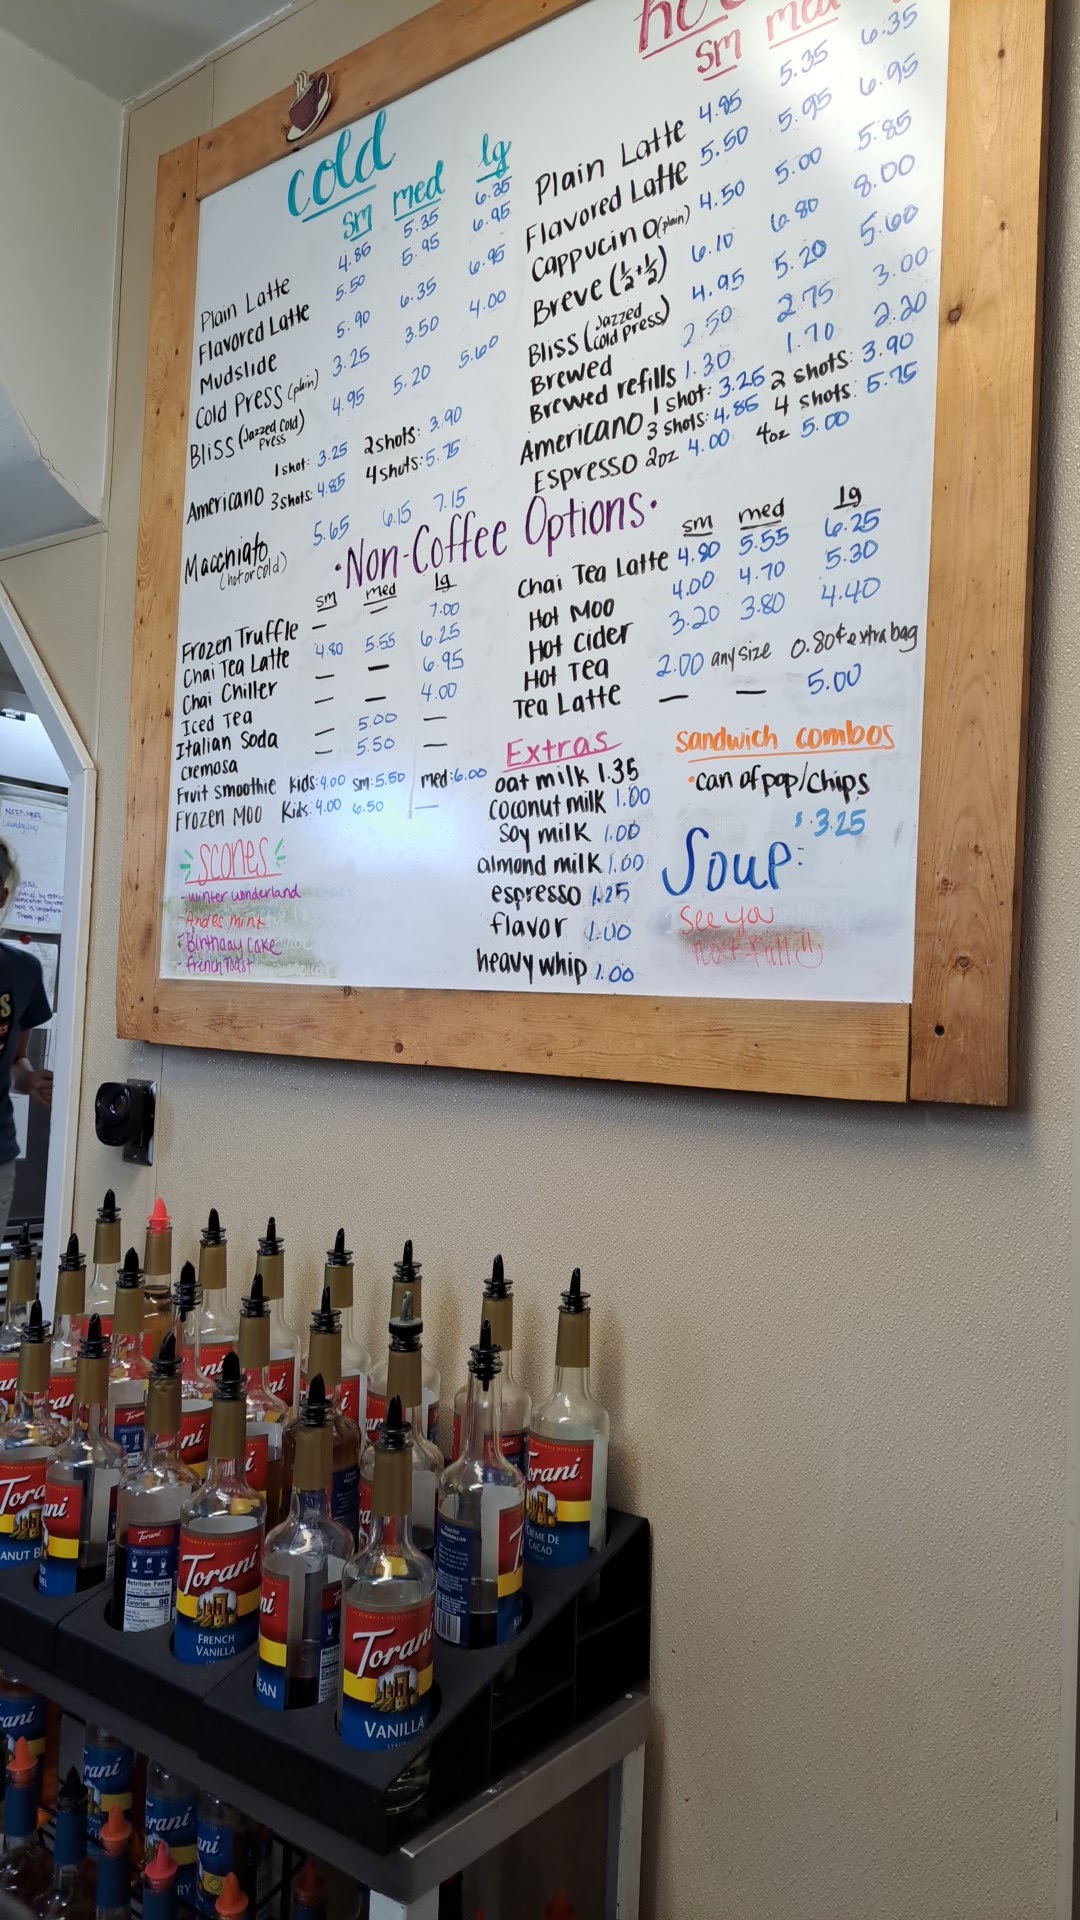 cold
sm med lg
Plain Latte 4.85 5.35 6.35
Flavored Latte 5.50 5.95 6.95
Mudslide 5.90 6.35 6.95
Cold Press (plain) 3.25 3.50 4.00
Bliss (Jazzed Cold Press) 4.95 5.20 5.60
Americano 1 shot: 3.25 2 shots: 3.90
3 shots: 4.85 4 shots: 5.75
Macchiato (hot or cold) 5.65 6.15 7.15
sm med
Plain Latte 4.85 5.35 6.35
Flavored Latte 5.50 5.95 6.95
Cappucino (plain) 4.50 5.00 5.85
Breve (½+½) 6.10 6.80 8.00
Bliss (Jazzed cold press) 4.95 5.20 5.60
Brewed 2.50 2.75 3.00
Brewed refills 1.30 1.70 2.20
Americano 1 shot: 3.25 2 shots: 3.90
3 shots: 4.85 4 shots: 5.75
Espresso 2oz 4.00 4oz 5.00
·Non-Coffee Options·
sm med lg
Frozen Truffle — — 7.00
Chai Tea Latte 4.80 5.55 6.25
Chai Chiller — — 6.95
Iced Tea — — 4.00
Italian Soda — 5.00 —
Cremosa — 5.50 —
Fruit Smoothie Kids: 4.00 sm: 5.50 med: 6.00
Frozen Moo Kids: 4.00 6.50 —
sm med lg
Chai Tea Latte 4.80 5.55 6.25
Hot Moo 4.00 4.70 5.30
Hot Cider 3.20 3.80 4.40
Hot Tea 2.00 any size 0.80¢ extra bag
Tea Latte — — 5.00
Scones
- winter wonderland
- Andes mint
- Birthday Cake
- french Toast
Extras
oat milk 1.35
coconut milk 1.00
soy milk 1.00
almond milk 1.00
espresso 1.25
flavor 1.00
heavy whip 1.00
sandwich combos
·can of pop/chips
$3.25
Soup:
See you
next fall
Torani
CRÈME DE
CACAO
Torani
FRENCH
VANILLA
Torani
VANILLA
Torani
Nutrition Facts
Calories 90